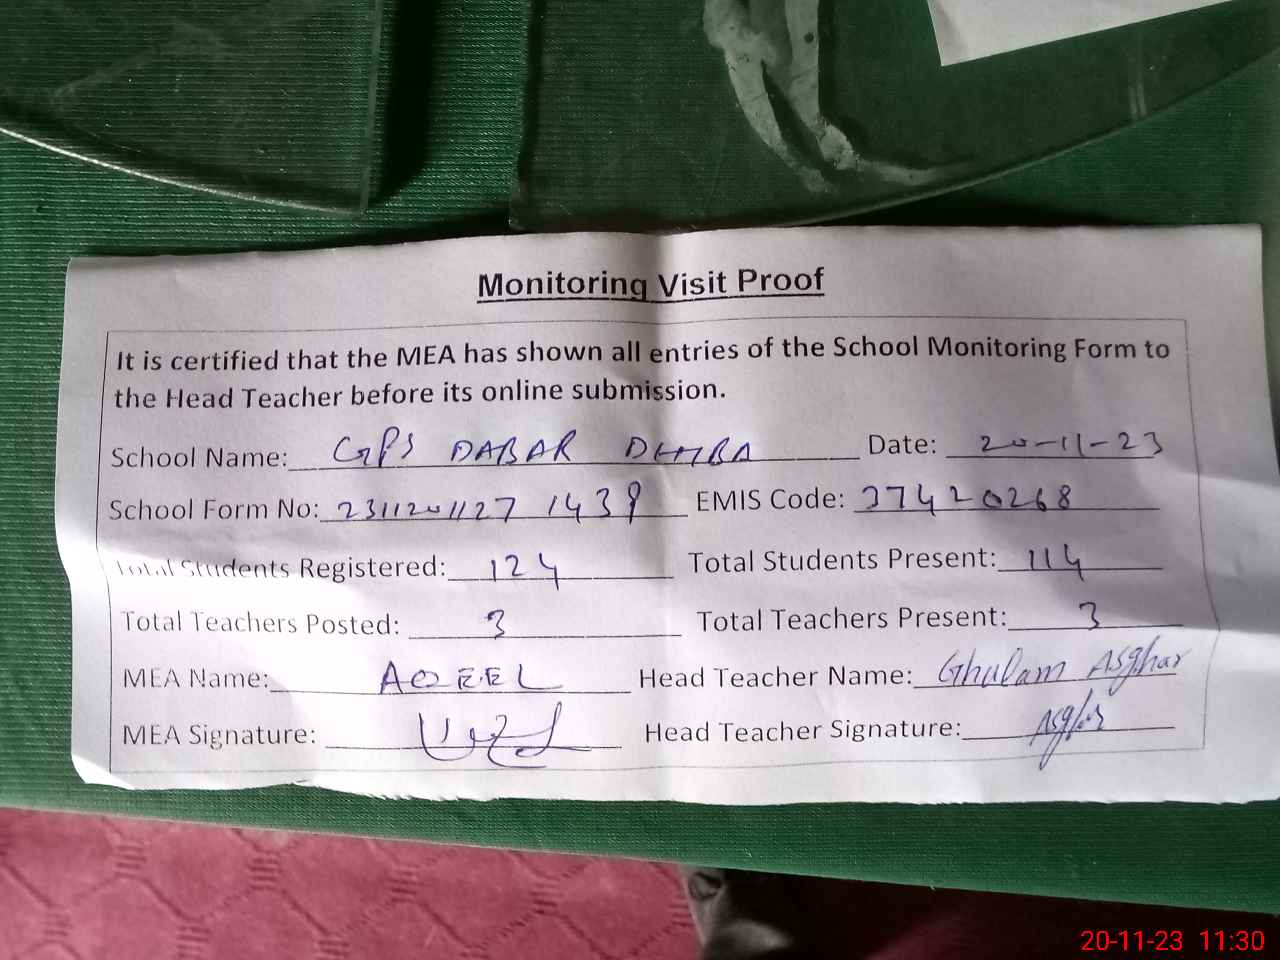 Monitoring Visit Proof
It is certified that the MEA has shown all entries of the School Monitoring Form to
the Head Teacher before its online submission.
School Name: GPS DABAR DHUBA Date: 20-11-23
School Form No: 2311201127 1439 EMIS Code: 37420268
Total Students Registered: 124 Total Students Present: 114
Total Teachers Posted: 3 Total Teachers Present: 3
MEA Name: AQEEL Head Teacher Name: Ghulam Asghar
MEA Signature: Head Teacher Signature: Asghar
20-11-23 11:30